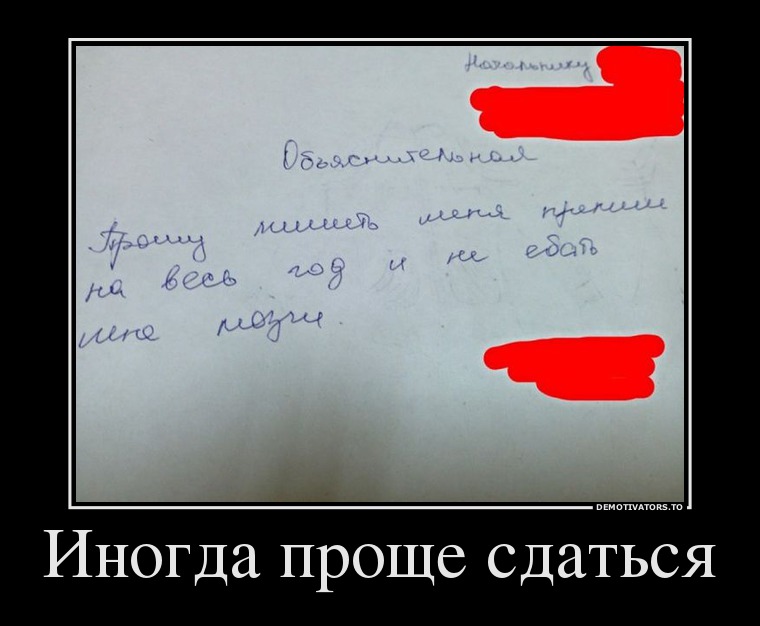 Начальнику
Объяснительная
Прошу лишить меня премии
на весь год и не ебать
мне мозги.
DEMOTIVATORS.TO
Иногда проще сдаться